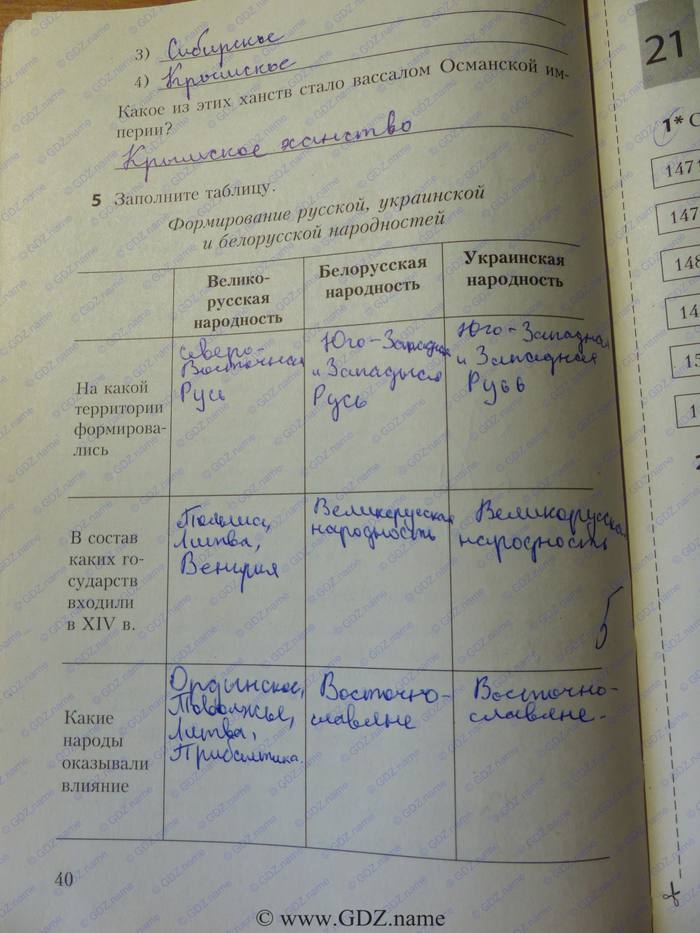 3) Сибирское
4) Крымское
Какое из этих ханств стало вассалом Османской им-
перии?
Крымское ханство
5 Заполните таблицу.
Формирование русской, украинской
и белорусской народностей
Велико-
русская
народность
Белорусская
народность
Украинская
народность
На какой
территории
формирова-
лись
северо-
Восточная
Русь
Юго-Западная
и Западная
Русь
Юго-Западная
и Западная
Русь
В состав
каких го-
сударств
входили
в XIV в.
Польша,
Литва,
Венгрия
Великорусская
народность
Великорусская
народность
5
Какие
народы
оказывали
влияние
Ордынское,
Поволжье,
Литва,
Прибалтика.
Восточно-
славяне
Восточно-
славяне.
40
21
1* С
1471
147
148
14
15
1
2
© www.GDZ.name